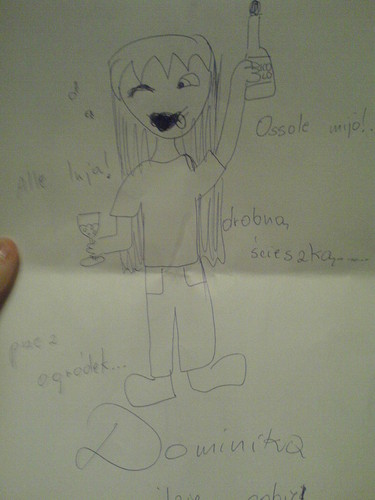 Ossole mijo!..
Alle luja!
drobną
ścieszką......
ogródek...
Dominika